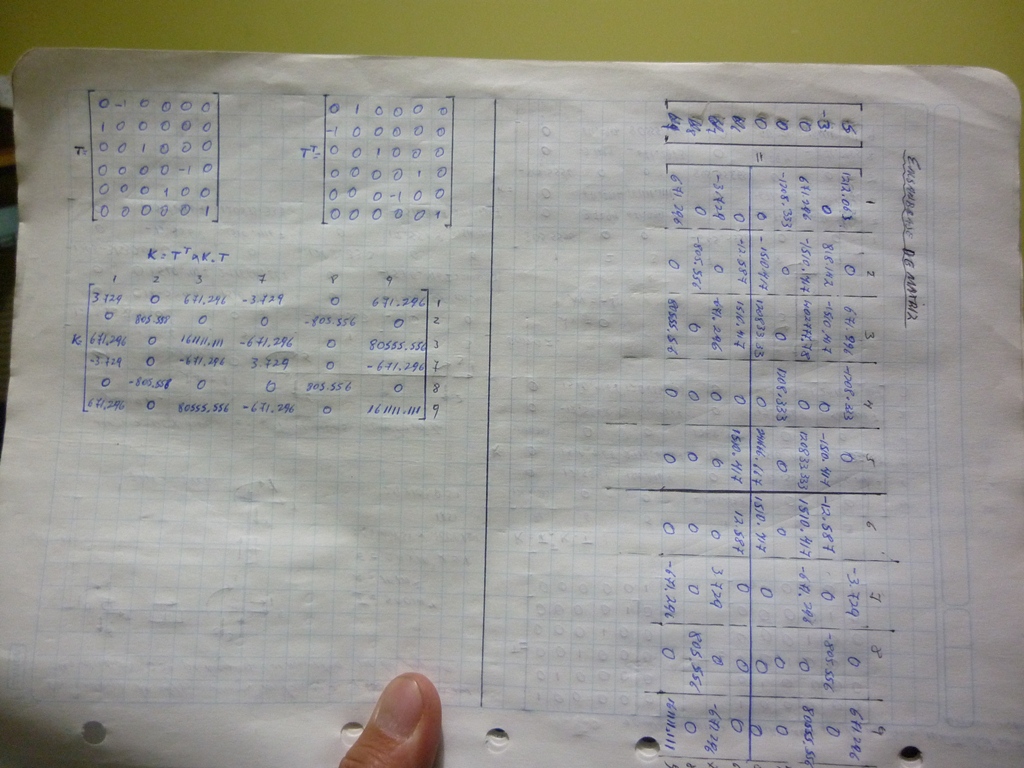 T=
0 -1 0 0 0 0
1 0 0 0 0 0
0 0 1 0 0 0
0 0 0 0 -1 0
0 0 0 1 0 0
0 0 0 0 0 1
T^T=
0 1 0 0 0 0
-1 0 0 0 0 0
0 0 1 0 0 0
0 0 0 0 1 0
0 0 0 -1 0 0
0 0 0 0 0 1
K = T^T x K . T
1 2 3 7 8 9
3.729 0 671.296 -3.729 0 671.296 1
0 805.558 0 0 -805.556 0 2
K= 671,296 0 161111.111 -671.296 0 80555.556 3
-3.729 0 -671.296 3.729 0 -671.296 7
0 -805.558 0 0 805.556 0 8
671,296 0 80555.556 -671.296 0 161111.111 9
DE MATRIZ
1 2 3 4 5 6 7 8 9
0 671.296 -1208.333 0 -12.587 -3.729 0 671.296
-3 0 818.142 -1510.417 0 -1510.417 0 -805.556 0
0 671.296 -1510.417 0 120833.333 1510.417 -671.296 0 80555.556
0 -1208.333 0 0 1208.333 0 0 0 0 0
0 0 -1510.417 120833.33 0 1510.417 0 0 0
0 -12.587 1510.417 0 1510.417 12.587 0 0 0
-3.729 0 -671.296 0 0 0 3.729 0 -671.296
0 -805.556 0 0 0 0 0 805.556 0
671.296 0 80555.56 0 0 0 -671.296 0 161111.111